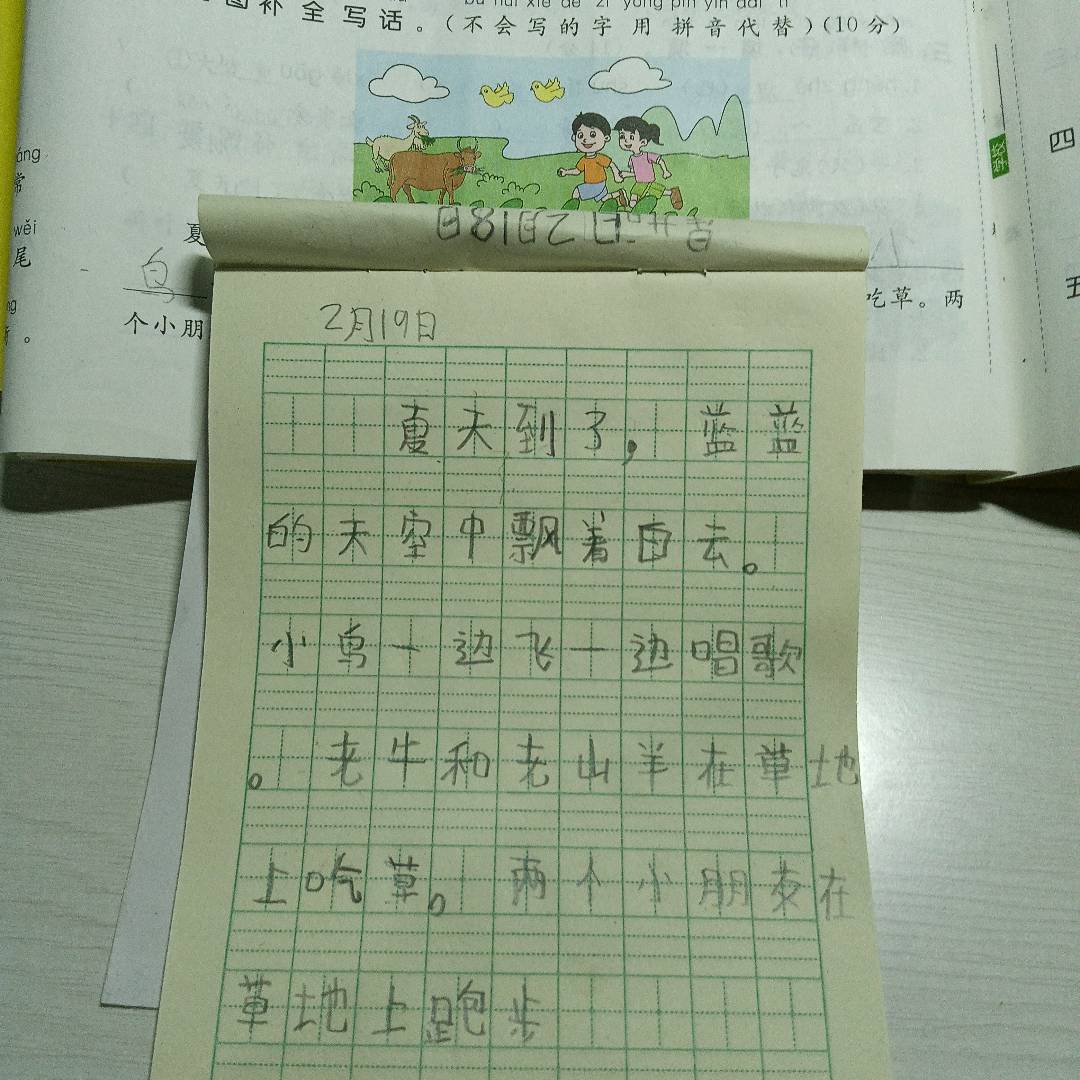 bù huì xiě de zì yòng pīn yīn dài tì
图补全写话。(不会写的字用拼音代替)(10分)
áng
常
wěi
尾
夏
鸟
小
吃草。两
个小朋
四
五
2月18日
2月19日
夏天到了,蓝蓝
的天空中飘着白去。
小鸟一边飞一边唱歌
。老牛和老山羊在草地
上吃草。两个小朋友在
草地上跑步